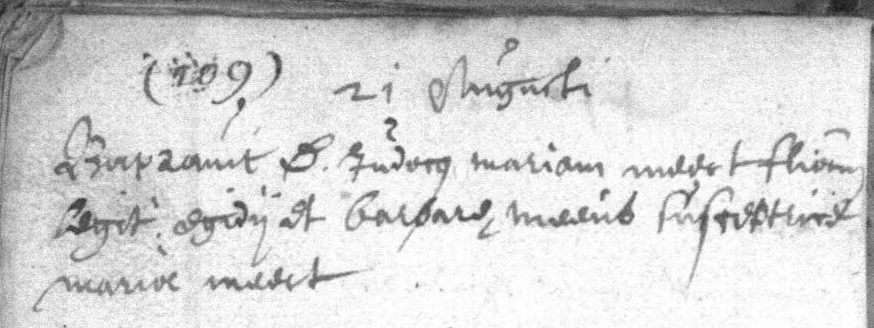 (109) 21 Augusti
Baptavit D. Judocus mariam meert filiam
Legit. egidij et barbarę meeus susceptrice
maria meert